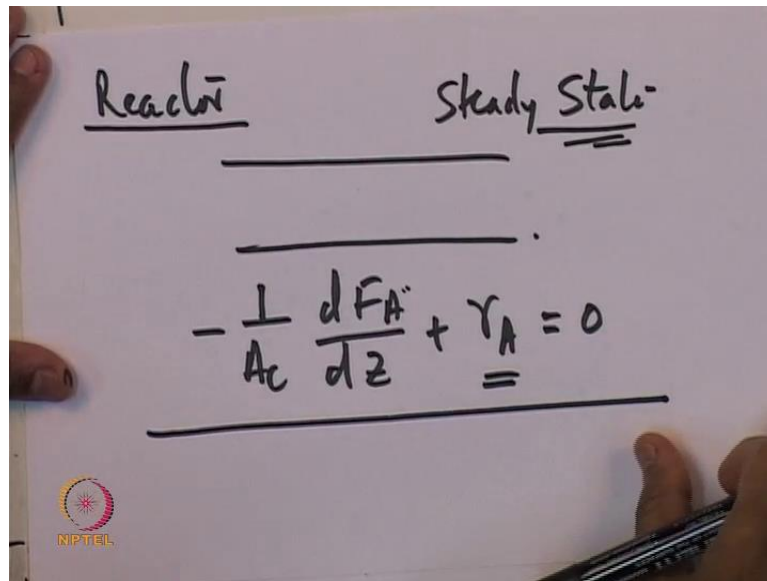 Reactor
Steady State
- 1/Ac dFA/dz + rA = 0
NPTEL